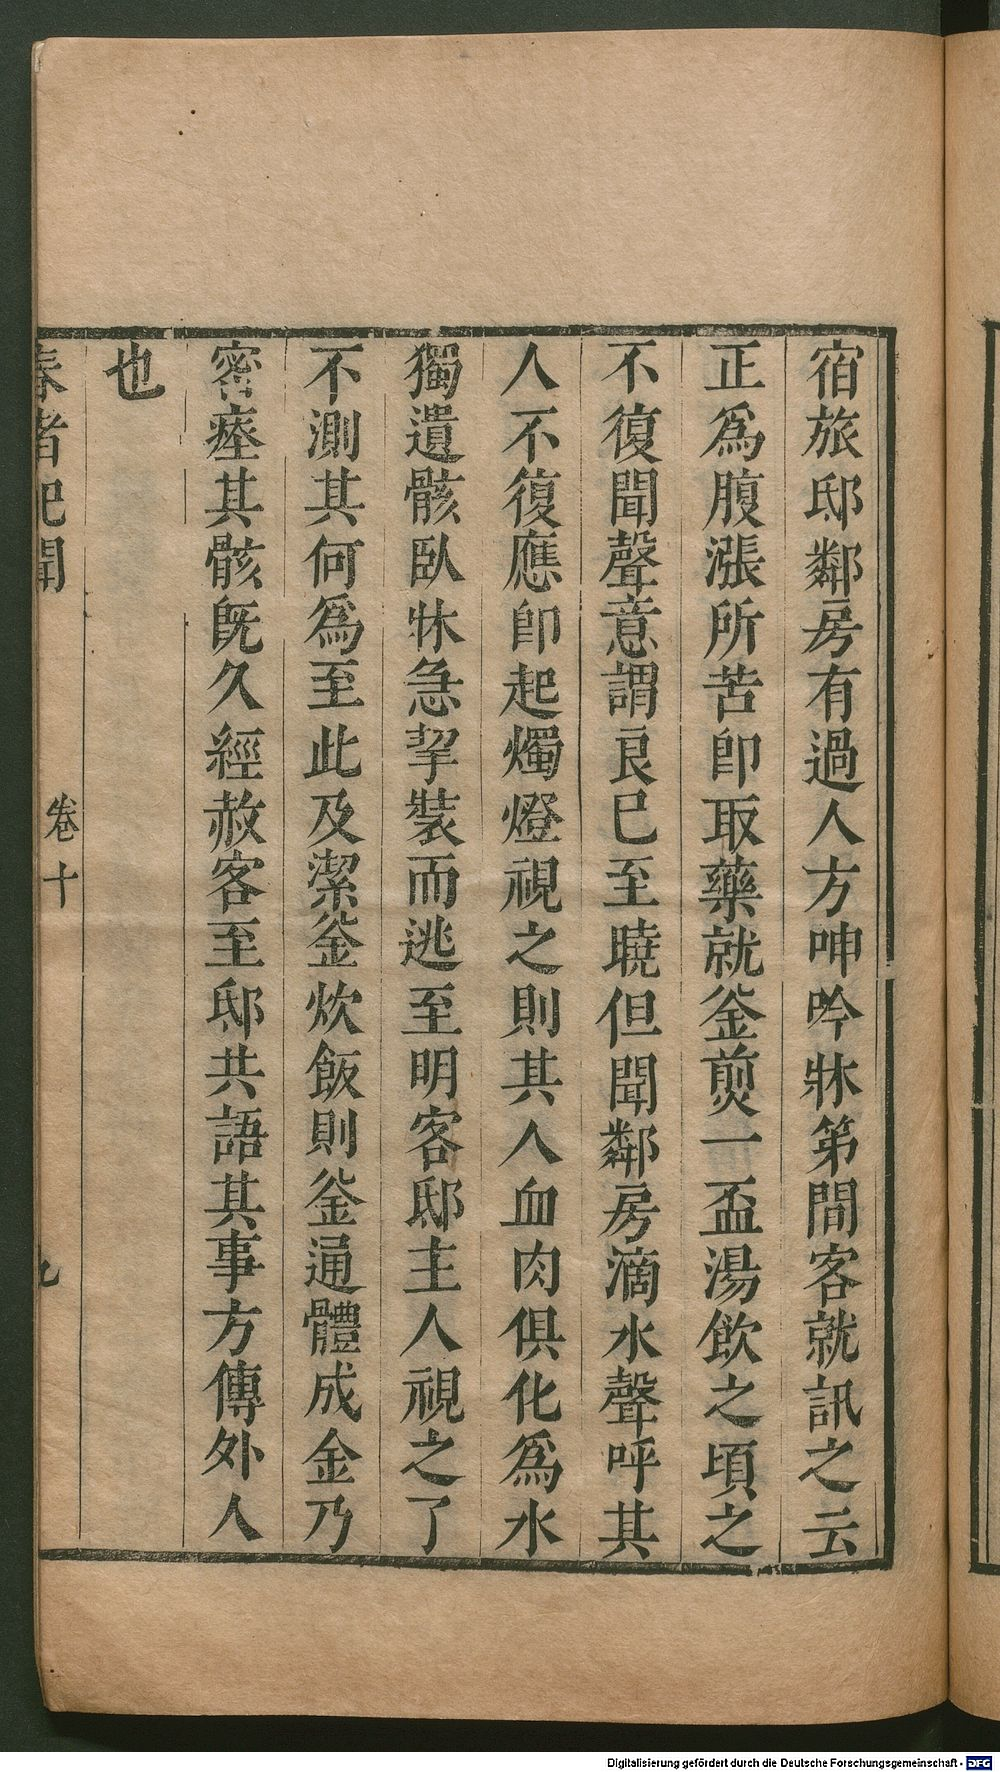 宿旅邸鄰房有過人方呻吟牀第間客就訊之云
正爲腹漲所苦卽取藥就釜煎一盃湯飲之頃之
不復聞聲意謂良已至曉但聞鄰房滴水聲呼其
人不復應卽起燭燈視之則其人血肉俱化爲水
獨遺骸臥牀急挈裝而逃至明客邸主人視之了
不測其何爲至此及潔釜炊飯則釜通體成金乃
密瘞其骸旣久經赦客至邸共語其事方傳外人
也
春渚紀聞
卷十
九
Digitalisierung gefördert durch die Deutsche Forschungsgemeinschaft - DFG